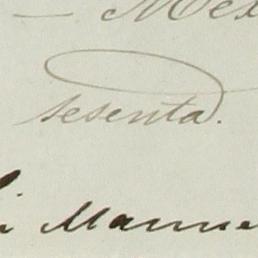 — Mex
sesenta.
i Manue